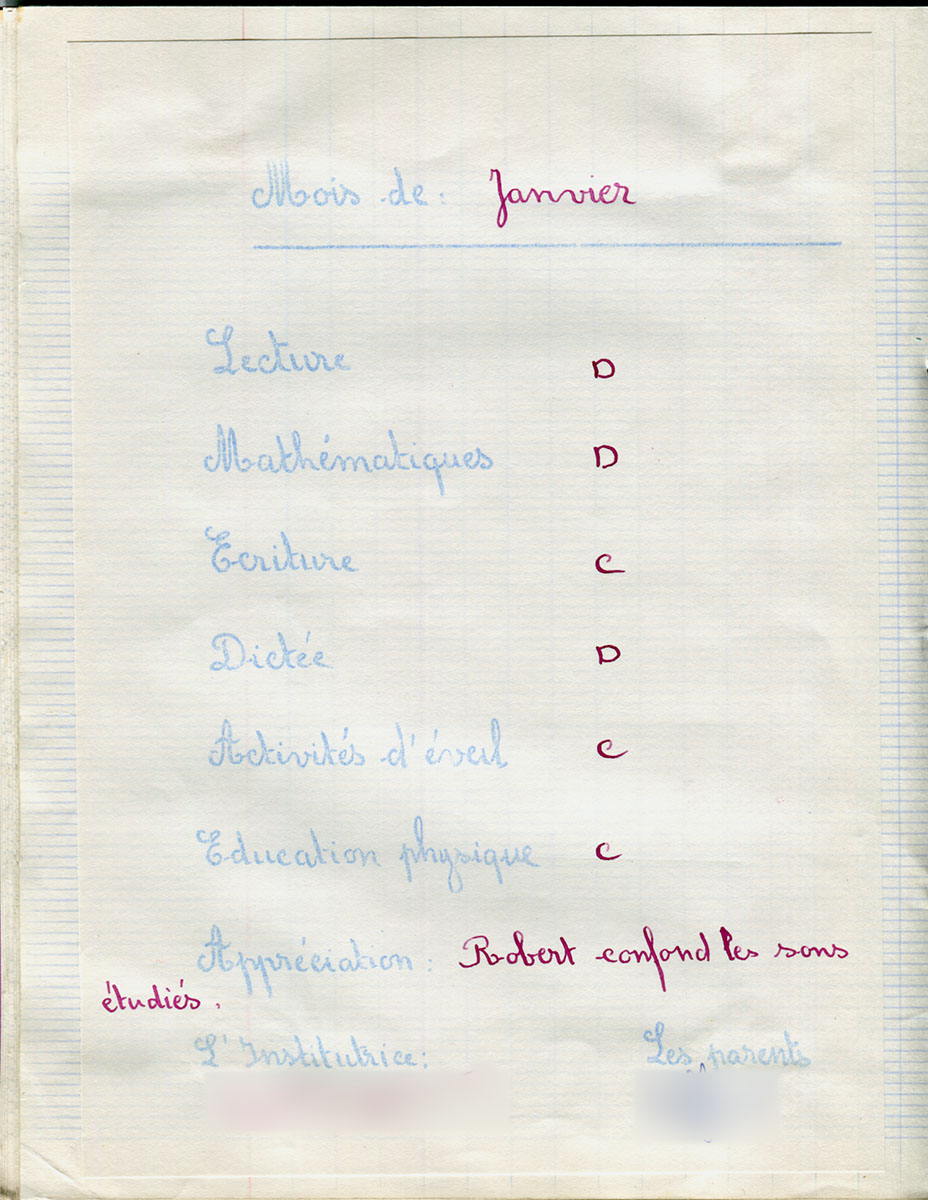 Mois de : Janvier
Lecture D
Mathématiques D
Ecriture C
Dictée D
Activités d'éveil C
Education physique C
Appréciation : Robert confond les sons
étudiés.
L'Institutrice : Les parents